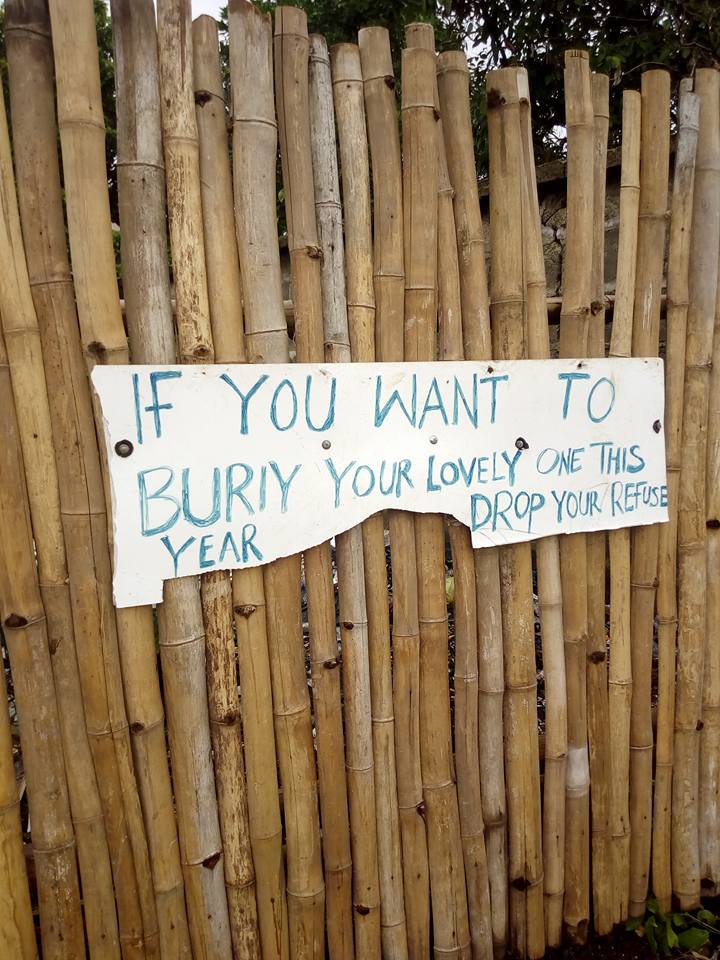 IF YOU WANT TO
BURIY YOUR LOVELY ONE THIS
YEAR DROP YOUR REFUSE